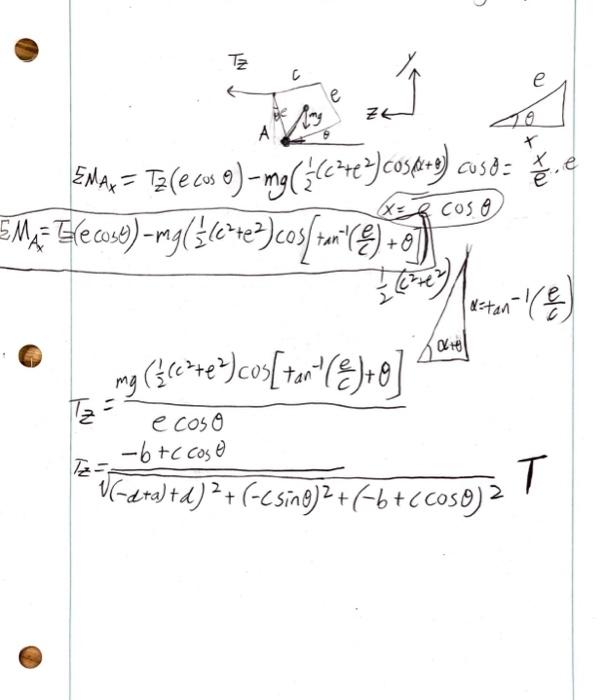 Tz
C
e
y
z
e
θ
x
A
e
mg
θ
ΣM_Ax = Tz(e cos θ) - mg(½(c²+e²)cos(α+θ)) cos θ = x/e · e
x = e cos θ
ΣM_Ax = Tz(e cosθ) - mg(½(c²+e²)cos[tan⁻¹(e/c) + θ])
½(c²+e²)
α = tan⁻¹(e/c)
α+θ
Tz = mg(½(c²+e²)cos[tan⁻¹(e/c)+θ] / e cosθ
Tz = -b + c cosθ / √(-d+a)+d)² + (-c sinθ)² + (-b + c cosθ)² T